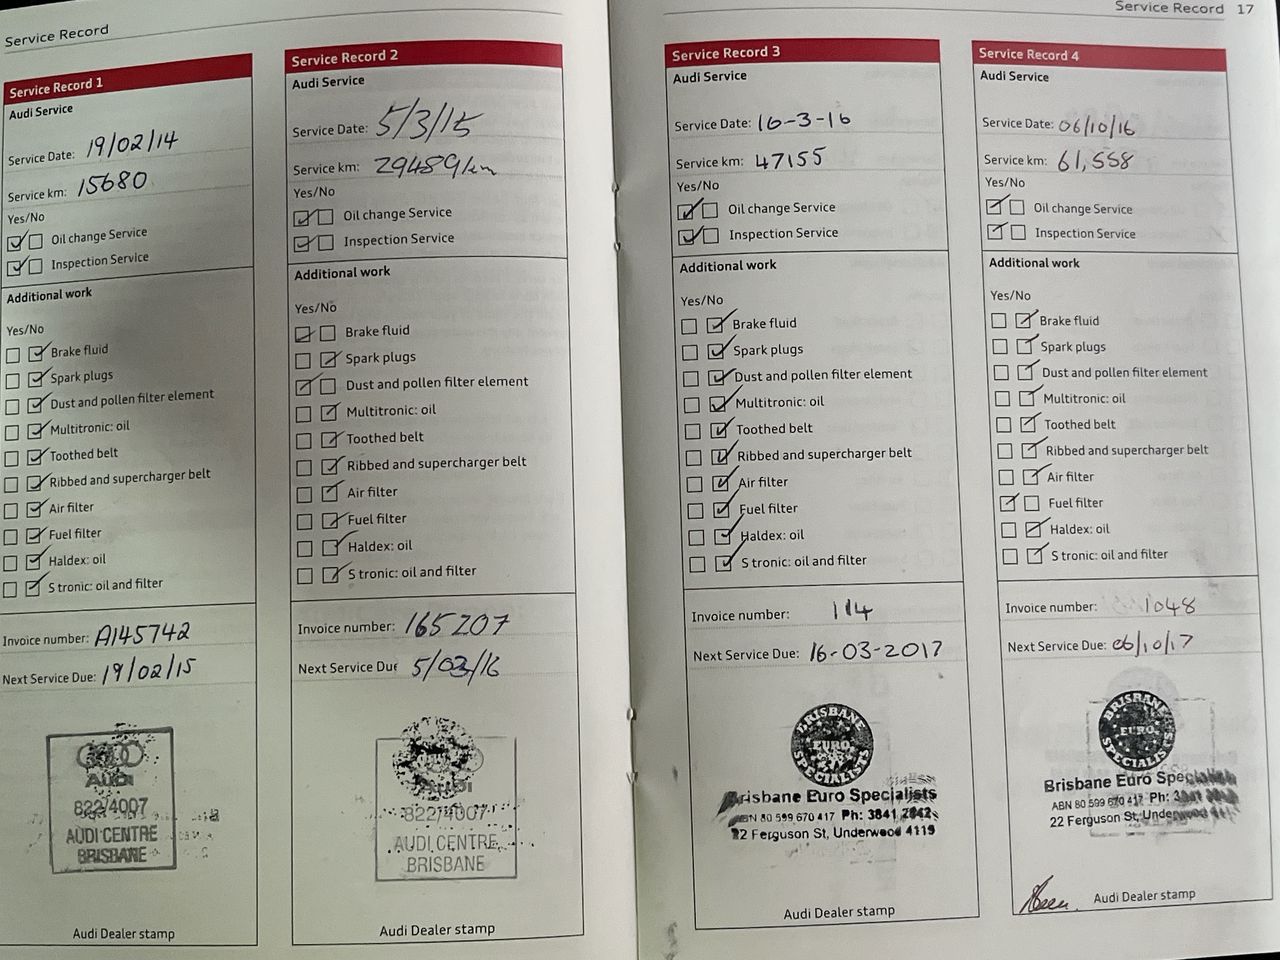 Service Record
Service Record 1
Audi Service
Service Date: 19/02/14
Service km: 15680
Yes/No
Oil change Service
Inspection Service
Additional work
Yes/No
Brake fluid
Spark plugs
Dust and pollen filter element
Multitronic: oil
Toothed belt
Ribbed and supercharger belt
Air filter
Fuel filter
Haldex: oil
S tronic: oil and filter
Invoice number: A145742
Next Service Due: 19/02/15
Audi
822/4007
AUDI CENTRE
BRISBANE
Audi Dealer stamp
Service Record 2
Audi Service
Service Date: 5/3/15
Service km: 29489km
Yes/No
Oil change Service
Inspection Service
Additional work
Yes/No
Brake fluid
Spark plugs
Dust and pollen filter element
Multitronic: oil
Toothed belt
Ribbed and supercharger belt
Air filter
Fuel filter
Haldex: oil
S tronic: oil and filter
Invoice number: 165207
Next Service Due 5/03/16
Audi
822/4007
AUDI CENTRE
BRISBANE
Audi Dealer stamp
Service Record 17
Service Record 3
Audi Service
Service Date: 16-3-16
Service km: 47155
Yes/No
Oil change Service
Inspection Service
Additional work
Yes/No
Brake fluid
Spark plugs
Dust and pollen filter element
Multitronic: oil
Toothed belt
Ribbed and supercharger belt
Air filter
Fuel filter
Haldex: oil
S tronic: oil and filter
Invoice number: 114
Next Service Due: 16-03-2017
BRISBANE
EURO
SPECIALISTS
Brisbane Euro Specialists
ABN 80 599 670 417 Ph: 3841 2842
22 Ferguson St, Underwood 4119
Audi Dealer stamp
Service Record 4
Audi Service
Service Date: 06/10/16
Service km: 61,558
Yes/No
Oil change Service
Inspection Service
Additional work
Yes/No
Brake fluid
Spark plugs
Dust and pollen filter element
Multitronic: oil
Toothed belt
Ribbed and supercharger belt
Air filter
Fuel filter
Haldex: oil
S tronic: oil and filter
Invoice number: 1048
Next Service Due: 06/10/17
BRISBANE
EURO
SPECIALISTS
Brisbane Euro Specialists
ABN 80 599 670 417 Ph:
22 Ferguson St, Underwood
Audi Dealer stamp